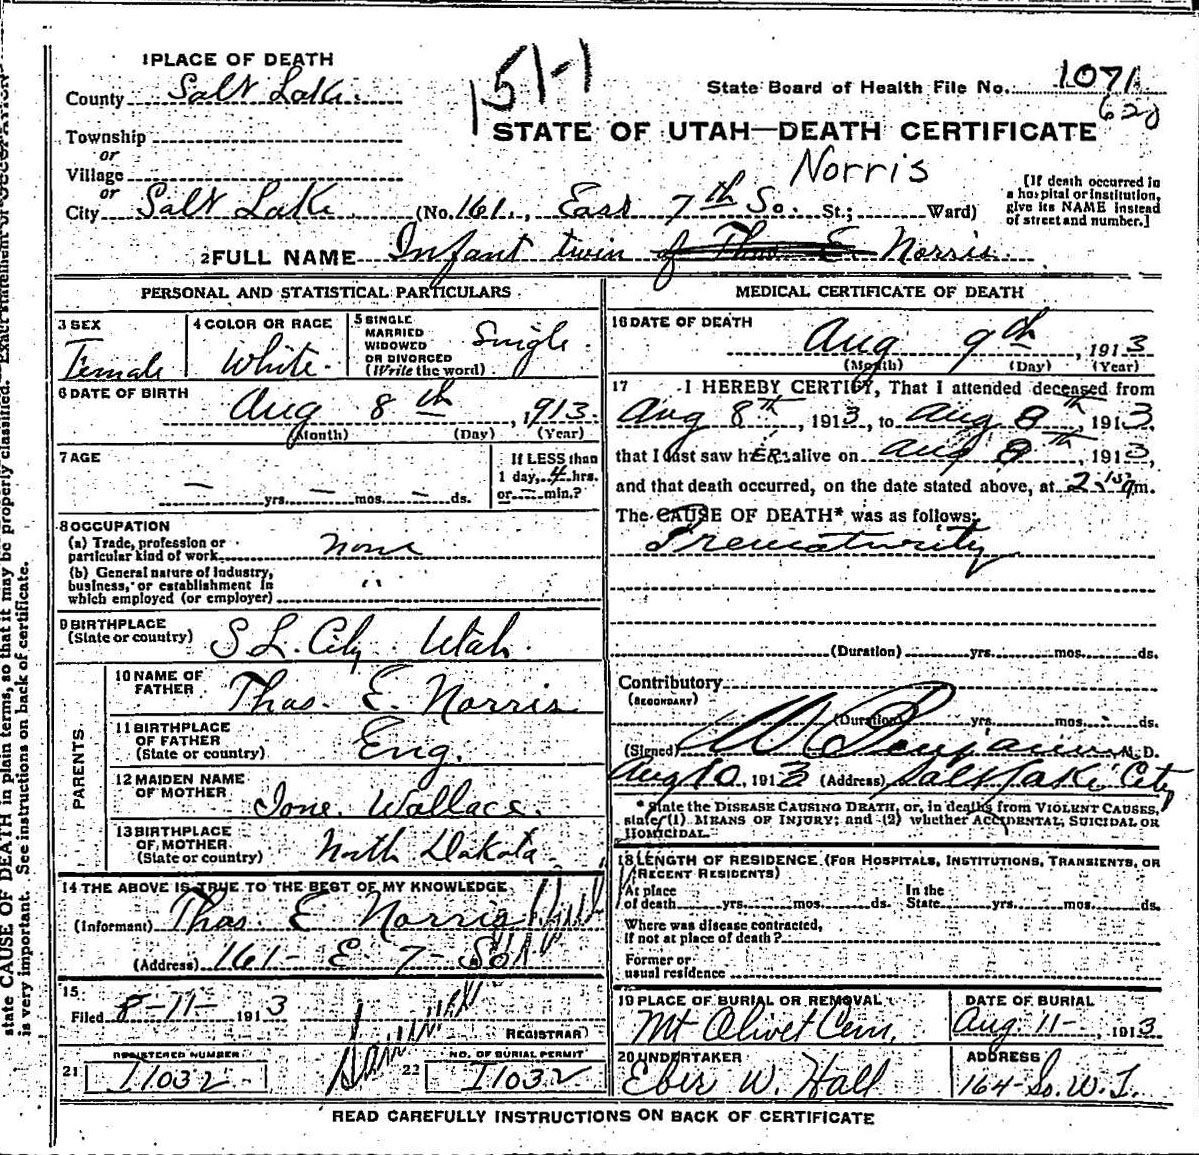 1 PLACE OF DEATH
151-1
County Salt Lake.
State Board of Health File No. 1071
620
Township
or
STATE OF UTAH—DEATH CERTIFICATE
Village
or
Norris
City Salt Lake (No. 161., East 7th So. St.; Ward)
[If death occurred in
a hospital or institution,
give its NAME instead
of street and number.]
2 FULL NAME Infant twin of Thos E. Norris.
PERSONAL AND STATISTICAL PARTICULARS
3 SEX
Female
4 COLOR OR RACE
White.
5 SINGLE
MARRIED
WIDOWED
OR DIVORCED
(Write the word)
Single.
6 DATE OF BIRTH
Aug 8th, 1913.
(Month) (Day) (Year)
7 AGE
— yrs. — mos. — ds.
If LESS than
1 day, 4 hrs.
or — min.?
8 OCCUPATION
(a) Trade, profession or
particular kind of work none
(b) General nature of industry,
business, or establishment in
which employed (or employer) "
9 BIRTHPLACE
(State or country) S L. City Utah.
PARENTS
10 NAME OF
FATHER Thos. E. Norris
11 BIRTHPLACE
OF FATHER
(State or country) Eng.
12 MAIDEN NAME
OF MOTHER Ione Wallace.
13 BIRTHPLACE
OF MOTHER
(State or country) North Dakota
14 THE ABOVE IS TRUE TO THE BEST OF MY KNOWLEDGE
(Informant) Thos. E Norris
(Address) 161- E- 7- So
15
Filed 8-11- 1913
REGISTRAR
REGISTERED NUMBER
21 I1032
NO. OF BURIAL PERMIT
22 I1032
MEDICAL CERTIFICATE OF DEATH
16 DATE OF DEATH
Aug 9th, 1913
(Month) (Day) (Year)
17 I HEREBY CERTIFY, That I attended deceased from
Aug 8TH, 1913, to Aug 8TH, 1913.
that I last saw hER alive on Aug 8TH, 1913,
and that death occurred, on the date stated above, at 2.15 am.
The CAUSE OF DEATH* was as follows:
Prematurity
(Duration) yrs. mos. ds.
Contributory
(SECONDARY)
(Duration) yrs. mos. ds.
(Signed) W Benjamin M. D.
Aug 10, 1913 (Address) Salt Lake City
* State the DISEASE CAUSING DEATH, or, in deaths from VIOLENT CAUSES,
state (1) MEANS OF INJURY; and (2) whether ACCIDENTAL, SUICIDAL OR
HOMICIDAL.
18 LENGTH OF RESIDENCE (FOR HOSPITALS, INSTITUTIONS, TRANSIENTS, OR
RECENT RESIDENTS)
At place
of death yrs. mos. ds.
In the
State yrs. mos. ds.
Where was disease contracted,
if not at place of death?
Former or
usual residence
19 PLACE OF BURIAL OR REMOVAL
Mt Olivet Cem.
DATE OF BURIAL
Aug. 11-, 1913
20 UNDERTAKER
Eber W. Hall
ADDRESS
164- So. W. T.
READ CAREFULLY INSTRUCTIONS ON BACK OF CERTIFICATE
state CAUSE OF DEATH in plain terms, so that it may be properly classified. Exact statement of OCCUPATION
is very important. See instructions on back of certificate.